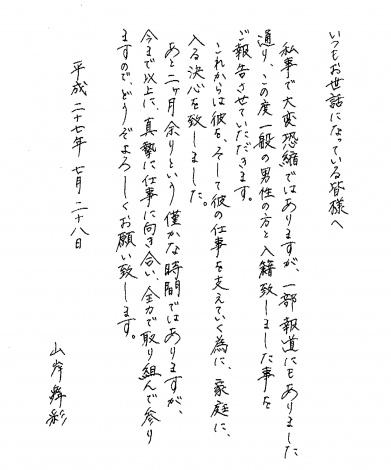 いつもお世話になっている皆様へ
私事で大変恐縮ではありますが、一部報道にもありました
通り、この度一般の男性の方と入籍致しました事を
ご報告させていただきます。
これからは彼を、そして彼の仕事を支えていく為に、家庭に
入る決心を致しました。
あと二ヶ月余りという僅かな時間ではありますが、
今まで以上に、真摯に仕事に向き合い、全力で取り組んで参り
ますので、どうぞよろしくお願い致します。
平成二十七年七月二十八日
山岸舞彩